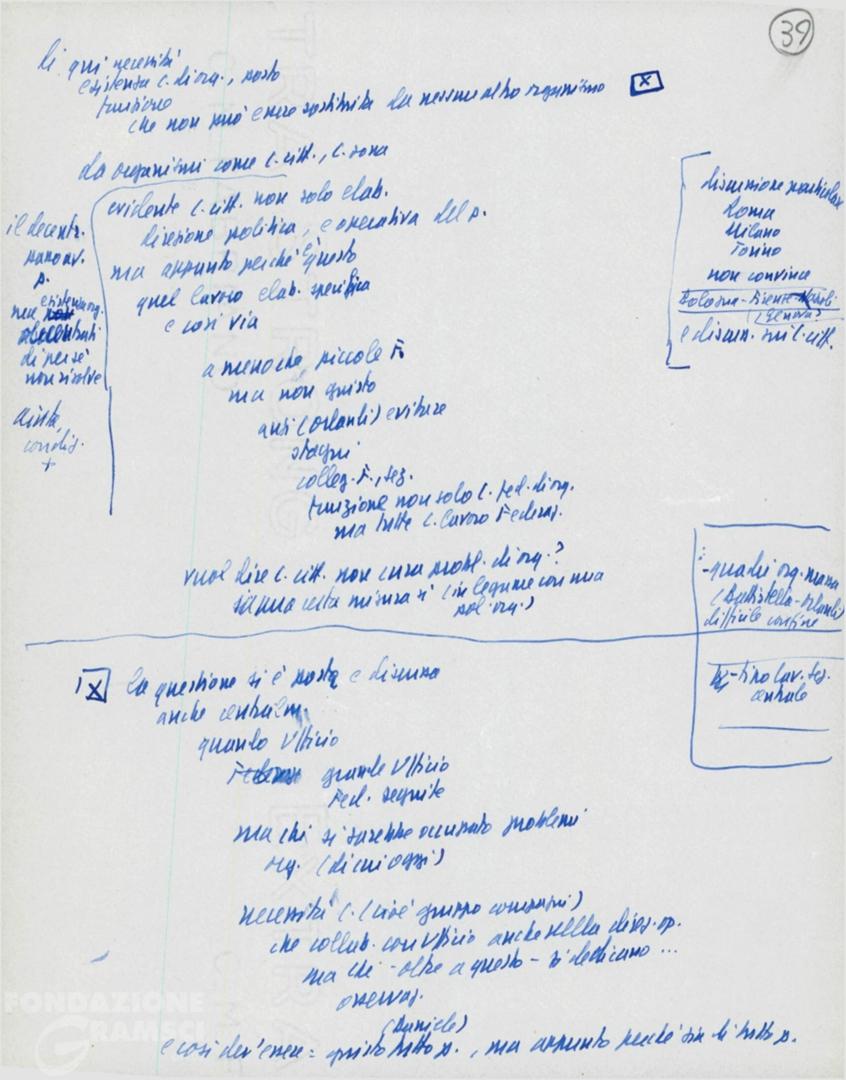 39
di qui necessità
esistenza C. di org., posto
funzione
che non può essere sostituita da nessun altro organismo x
da organismi come C. citt., C. zona
evidente C. citt. non solo elab.
direzione politica, e operativa del p.
ma appunto perché è questo
quel lavoro elab. specifica
e così via
a meno che piccole F.
ma non giusto
anzi (Orlandi) evitare
stagni
colleg. F., sez.
funzione non solo C. fed. di org.
ma tutte C. lavoro Federaz.
vuol dire C. citt. non cura probl. di org.?
una certa misura sì (in legame con una
pol. org.)
il decentr.
nuovo
p.
ma esistenza org.
decentrati
di per sé
non risolve
aiuta,
condiz.
+
discussione particolare
Roma
Milano
Torino
non convince
Bologna - Firenze - Napoli
(Genova?)
e discuss. sui C. citt.
- quadri org. massa
(Battistella - Orlandi)
difficile confine
- tipo lav. sez.
centrale
x la questione si è posta e discussa
anche centralm.
quando Ufficio
grande Ufficio
Fed. seguite
ma chi si sarebbe occupato problemi
org. (di cui oggi)
necessità C. (cioè gruppo compagni)
che collab. con Ufficio anche nella direz. op.
ma che - oltre a questo - si dedicano ...
osservaz.
(Daniele)
e così dev'essere = quisto tutto p., ma appunto perché sia di tutto p.
FONDAZIONE
GRAMSCI